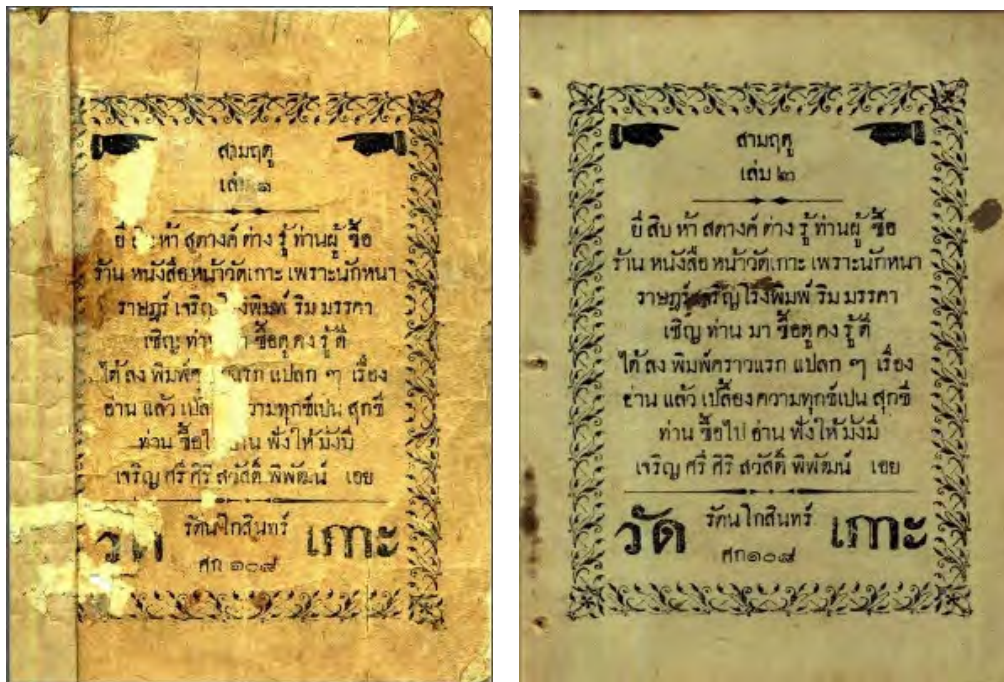 สามฤดู
เล่ม ๑
ยี่ สิบ ห้า สตางค์ ต่าง รู้ ท่านผู้ ซื้อ
ร้าน หนังสือ หน้าวัดเกาะ เพราะนักหนา
ราษฎร์ เจริญ โรงพิมพ์ ริม มรรคา
เชิญ ท่าน มา ซื้อดู คง รู้ ดี
ได้ ลง พิมพ์ แรก แปลก ๆ เรื่อง
อ่าน แล้ว ความทุกข์เปน สุกขี
ท่าน ซื้อไป อ่าน ฟังให้ มั่งมี
เจริญ ศรี ศิริ สวัสดิ์ พิพัฒน์ เอย
วัด รัตนโกสินทร์ เกาะ
ศก ๑๐๘
สามฤดู
เล่ม ๒
ยี่ สิบ ห้า สตางค์ ต่าง รู้ ท่านผู้ ซื้อ
ร้าน หนังสือ หน้าวัดเกาะ เพราะนักหนา
ราษฎร์ เจริญ โรงพิมพ์ ริม มรรคา
เชิญ ท่าน มา ซื้อดู คง รู้ ดี
ได้ ลง พิมพ์คราวแรก แปลก ๆ เรื่อง
อ่าน แล้ว เปลื้องความทุกข์เปน สุกขี
ท่าน ซื้อไป อ่าน ฟังให้ มั่งมี
เจริญ ศรี ศิริ สวัสดิ์ พิพัฒน์ เอย
วัด รัตนโกสินทร์ เกาะ
ศก ๑๐๘